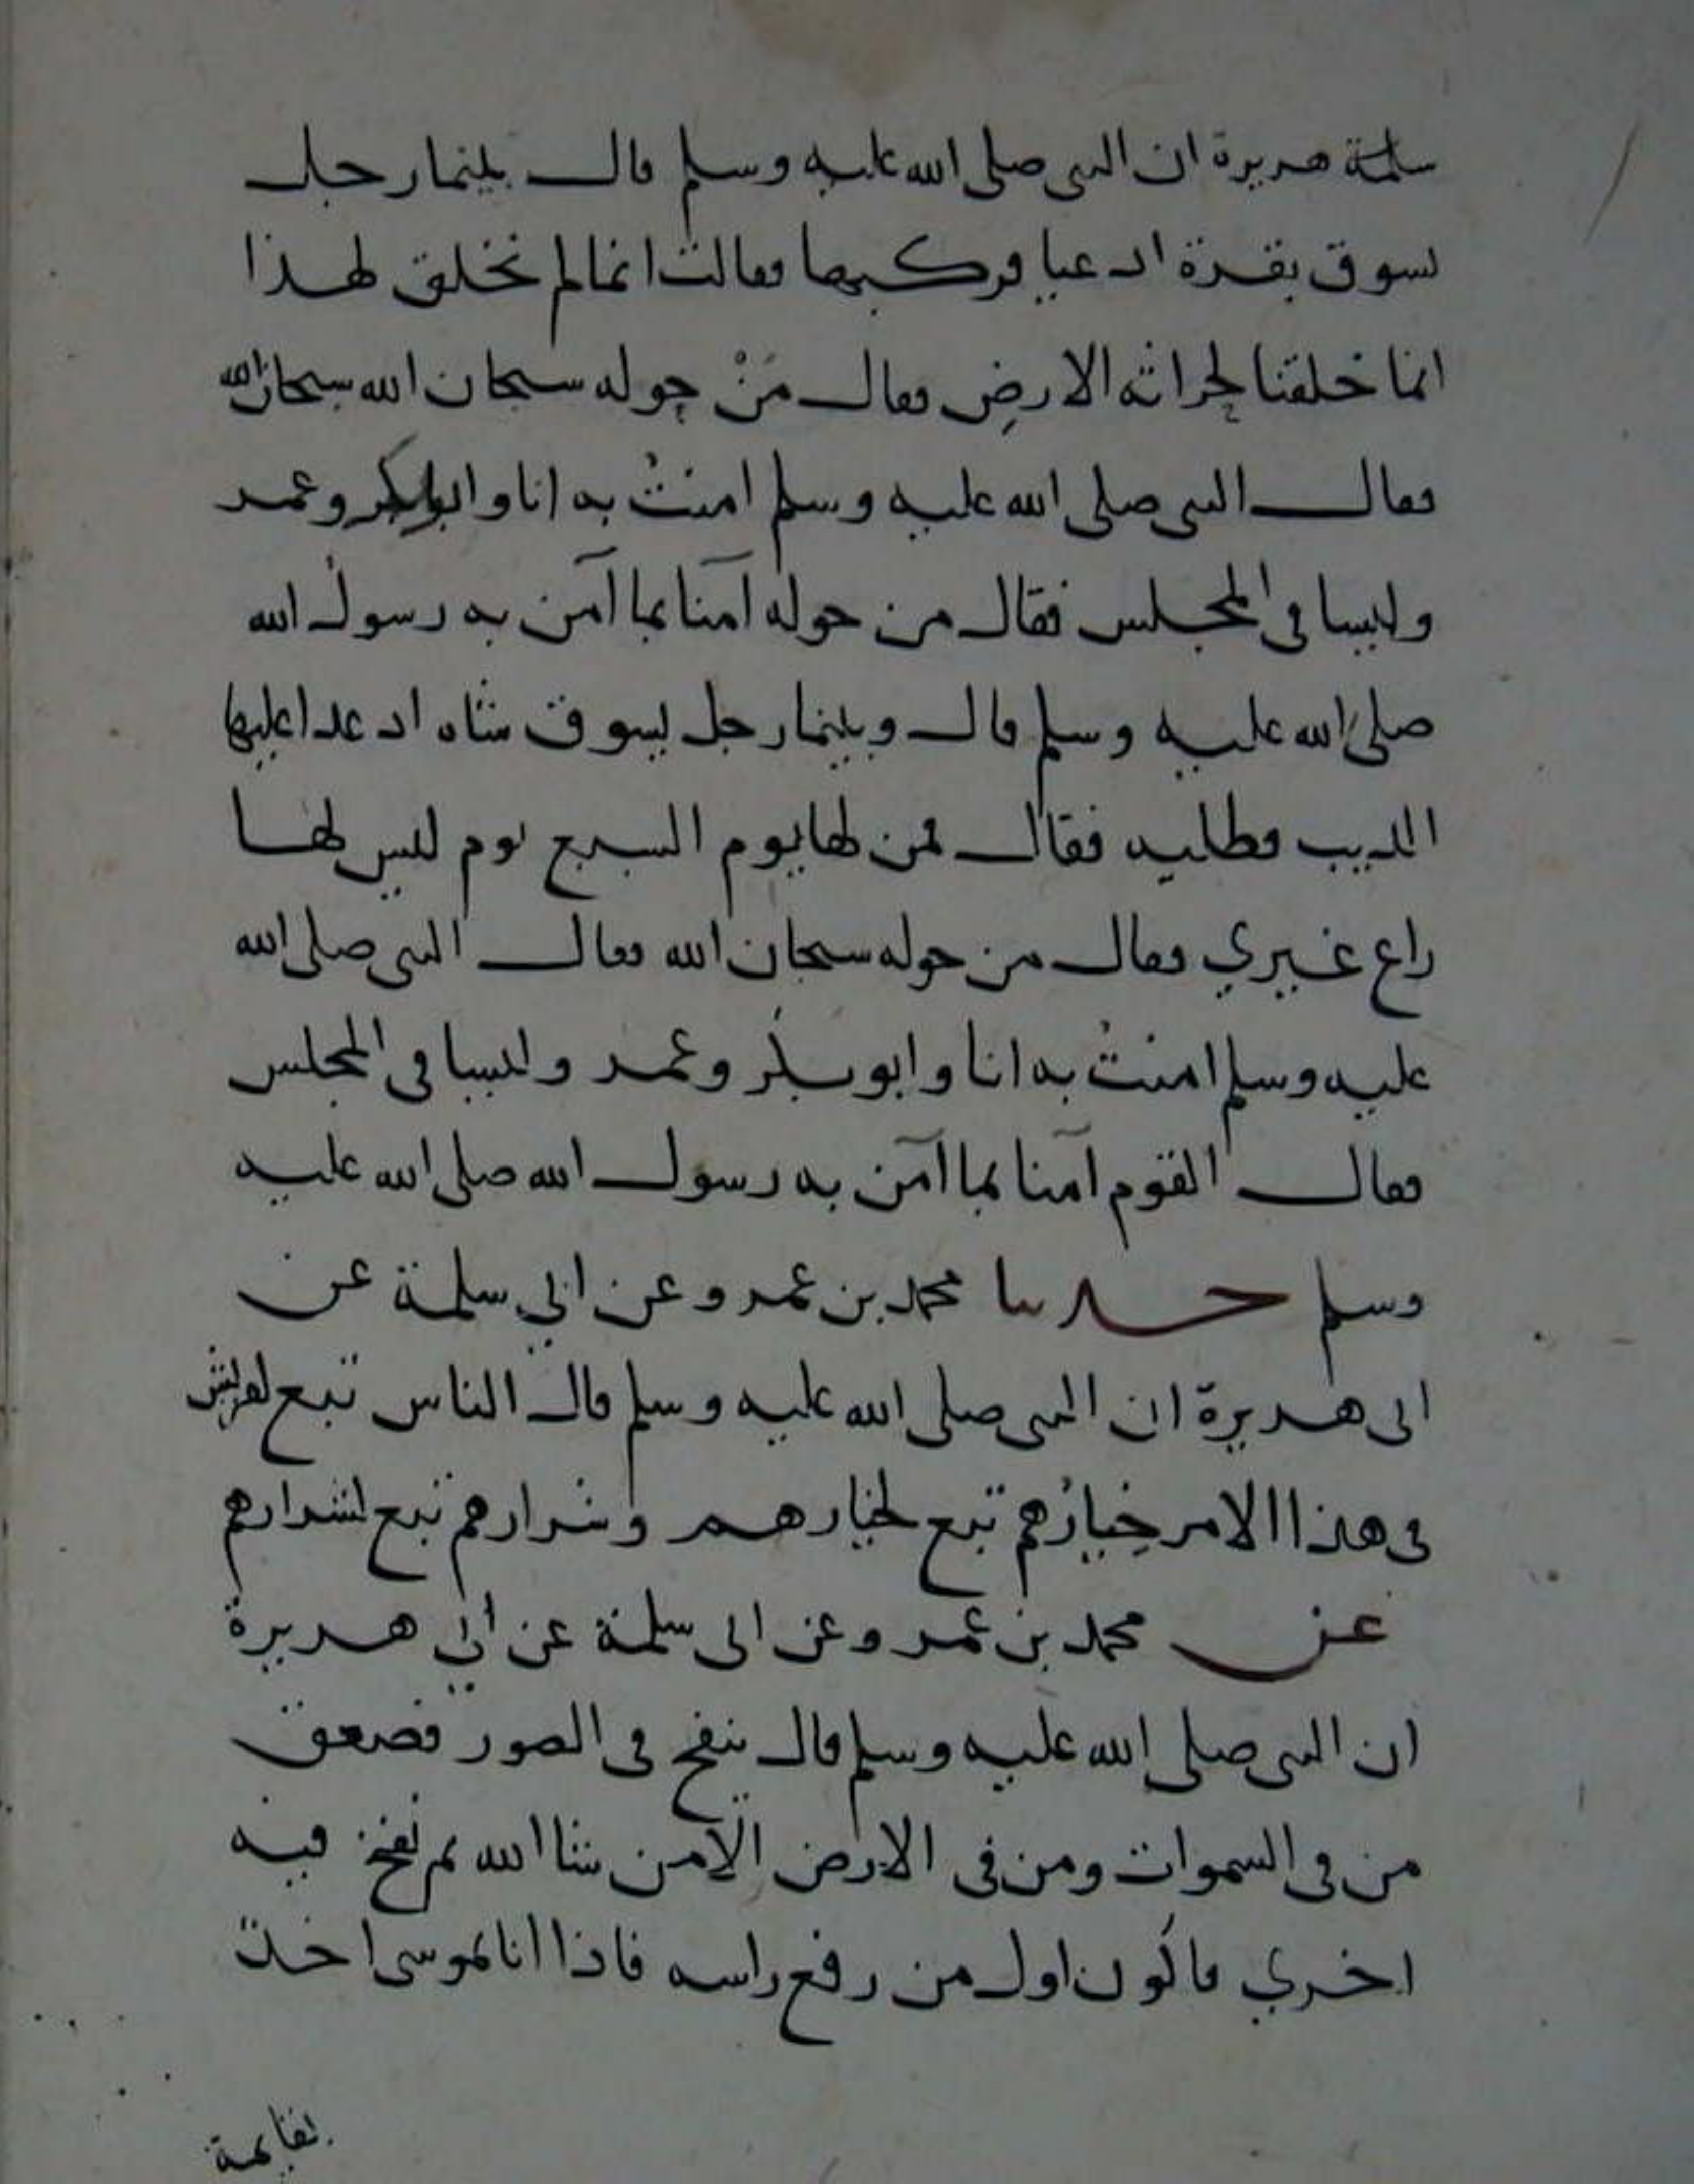 سلمة هريرة ان النبي صلى الله عليه وسلم قال بينما رجل
يسوق بقرة اذ عيا فركبها فقالت انا لم نخلق لهذا
انما خلقنا لحراثه الارض فقال مَنْ حوله سبحان الله سبحان الله
فقال النبي صلى الله عليه وسلم امنتُ به انا وابوبكر وعمر
وليسا في المجلس فقال من حوله آمنا بما آمن به رسول الله
صلى الله عليه وسلم قال وبينما رجل يسوق شاه اذ عدا عليها
الذيب فطلبه فقال فمن لها يوم السبع يوم ليس لها
راع غيري فقال من حوله سبحان الله فقال النبي صلى الله
عليه وسلم امنتُ به انا وابو بكر وعمر وليسا في المجلس
فقال القوم آمنا بما آمن به رسول الله صلى الله عليه
وسلم حدثنا محمد بن عمرو عن ابي سلمة عن
ابى هريرة ان النبي صلى الله عليه وسلم قال الناس تبع لقريش
في هذا الامر خِيارُهم تبع لخيارهم وشرارهم تبع لشرارهم
عن محمد بن عمرو عن ابى سلمة عن ابي هريرة
ان النبي صلى الله عليه وسلم قال ينفخ في الصور فصعق
من في السموات ومن في الارض الا من شا الله ثم نفخ فيه
اخري فاكون اول من رفع راسه فاذا انا بموسى اخذ
بقايمة